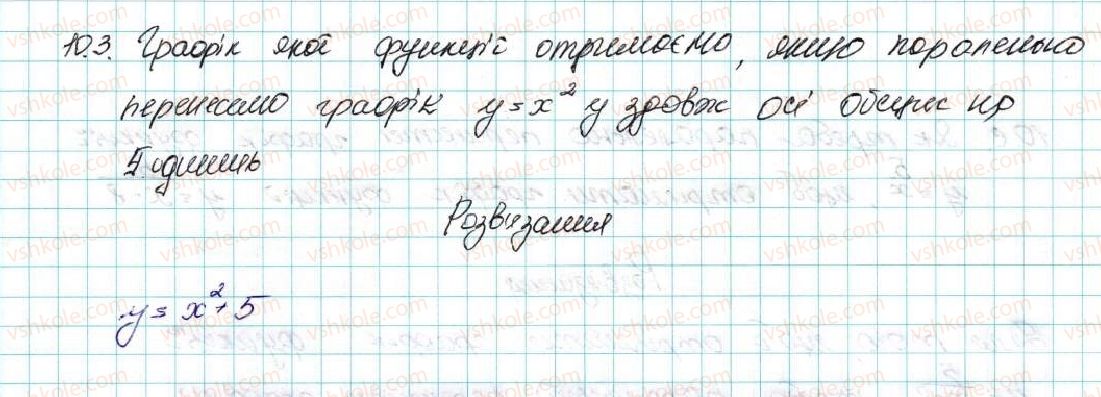 10.3. Графік якої функції отримаємо, якщо паралельно
перенесемо графік y = x² уздовж осі абсцис на
5 одиниць
Розв'язання
y = x² + 5